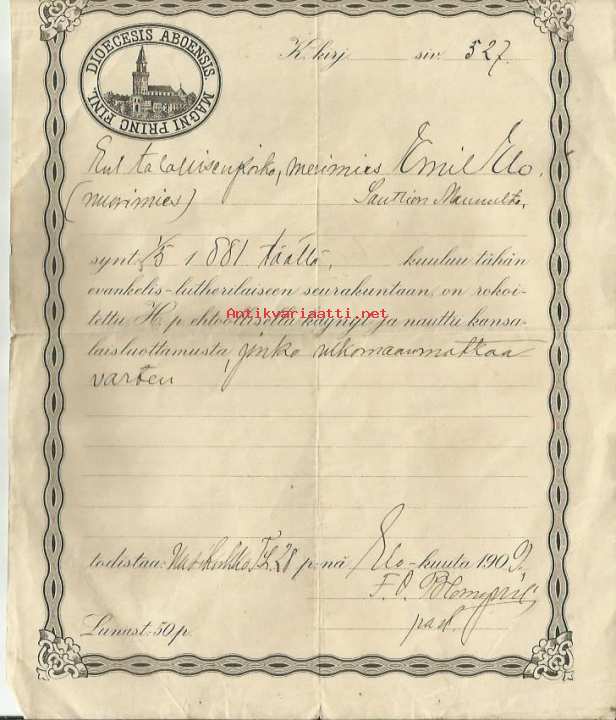 DIOECESIS ABOENSIS MAGNI PRINC FINL.
K. kirj. siv. 527.
Ent talollisenpoika, merimies Emil Elo.
(nuorimies)
synt. 1/5 1881 täällä, kuuluu tähän
evankelis-lutherilaiseen seurakuntaan, on rokoi-
tettu, H. p. ehtoollisella käynyt ja nauttii kansa-
laisluottamusta, jonka ulkomaanmatkaa
varten
Antikvariaatti.net
todistaa: 28 p:nä Elo-kuuta 1909.
F. O.
past.
Lunast: 50 p.